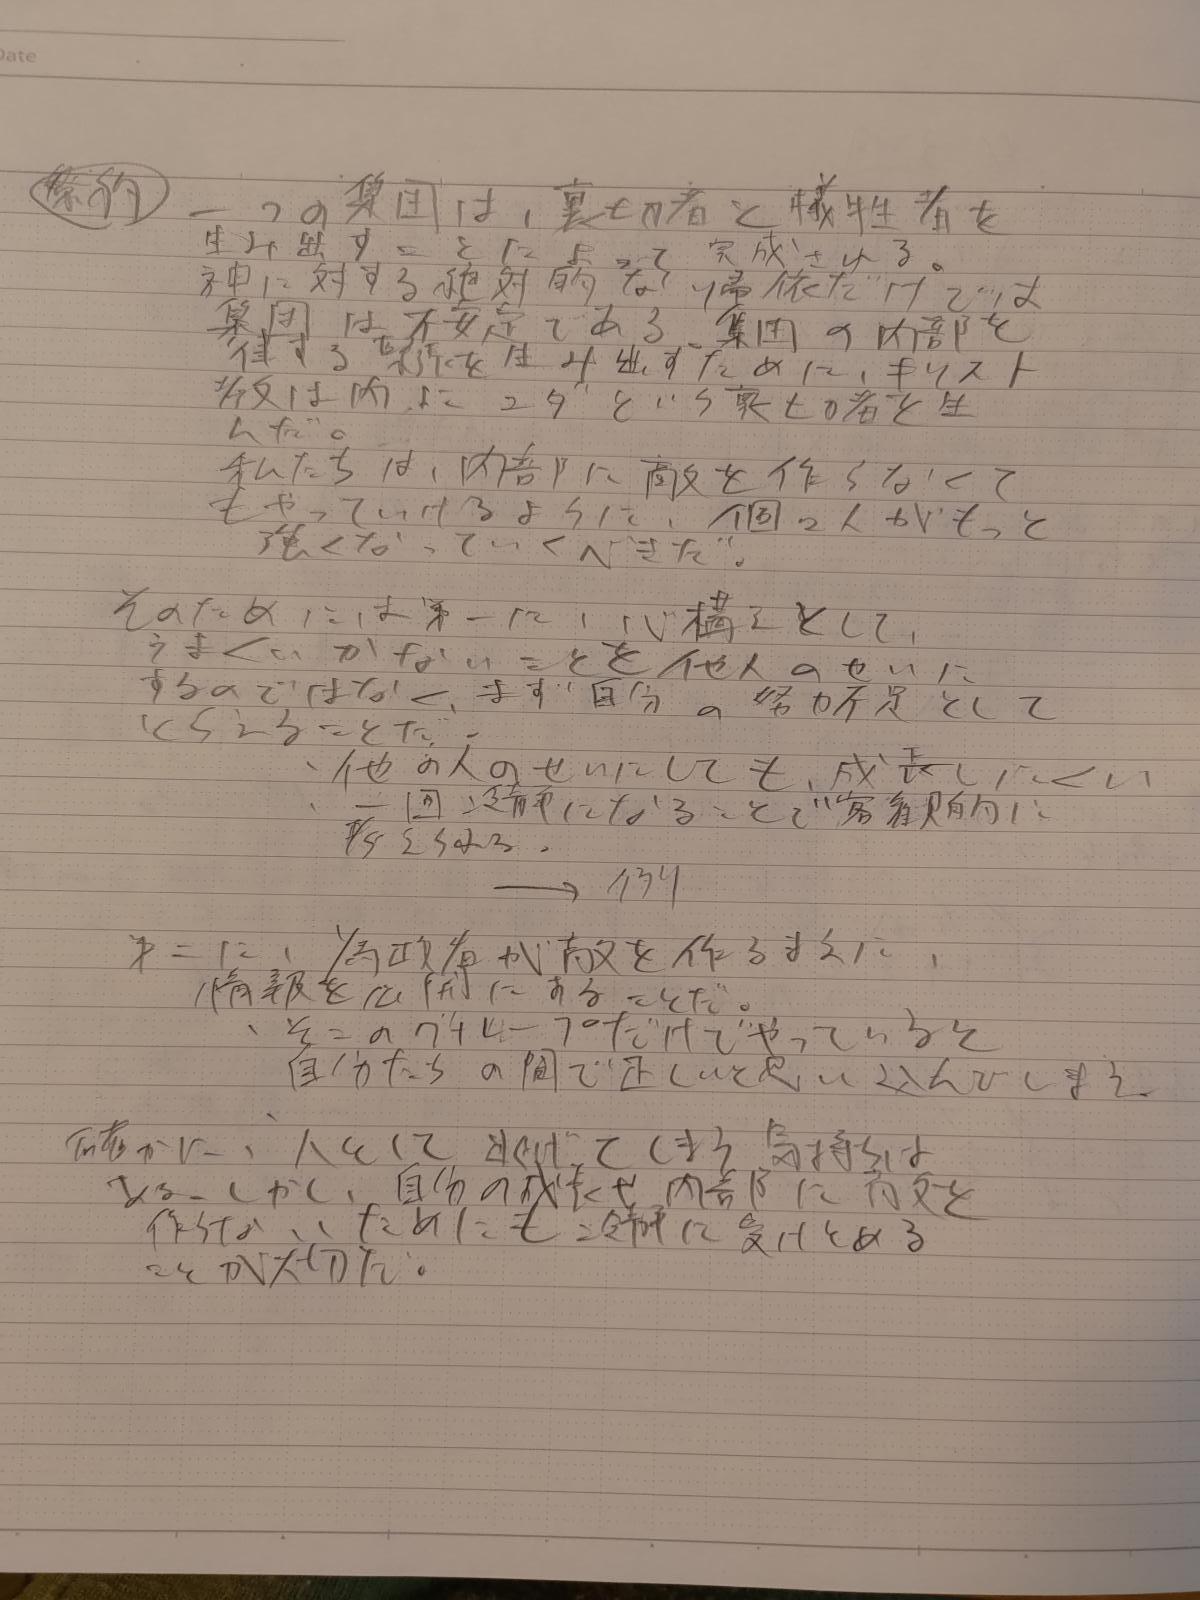 Date
要約
一つの集団は、裏切り者と犠牲者を
生み出すことによって完成される。
神に対する絶対的な帰依だけでは
集団は不安定である。集団の内部を
する緊張を生み出すために、キリスト
教は内にユダという裏切り者を生
んだ。
私たちは、内部に敵を作らなくて
もやっていけるように、個々人がもっと
強くなっていくべきだ。
そのためには第一に、心構えとして、
うまくいかないことを他人のせいに
するのではなく、まず自分の努力不足として
とらえることだ。
、他の人のせいにしても、成長しにくい
、一回冷静になることで客観的に
考えられる。
→ 例
第二に、為政者が敵を作るまえに、
情報を公開にあることだ。
、そこのグループだけでやっていると
自分たちの間で正しいと思い込んでしまう。
確かに、人として逃げてしまう気持ちは
ある。しかし、自分の成長や内部に敵を
作らないためにも冷静に受けとめる
ことが大切だ。